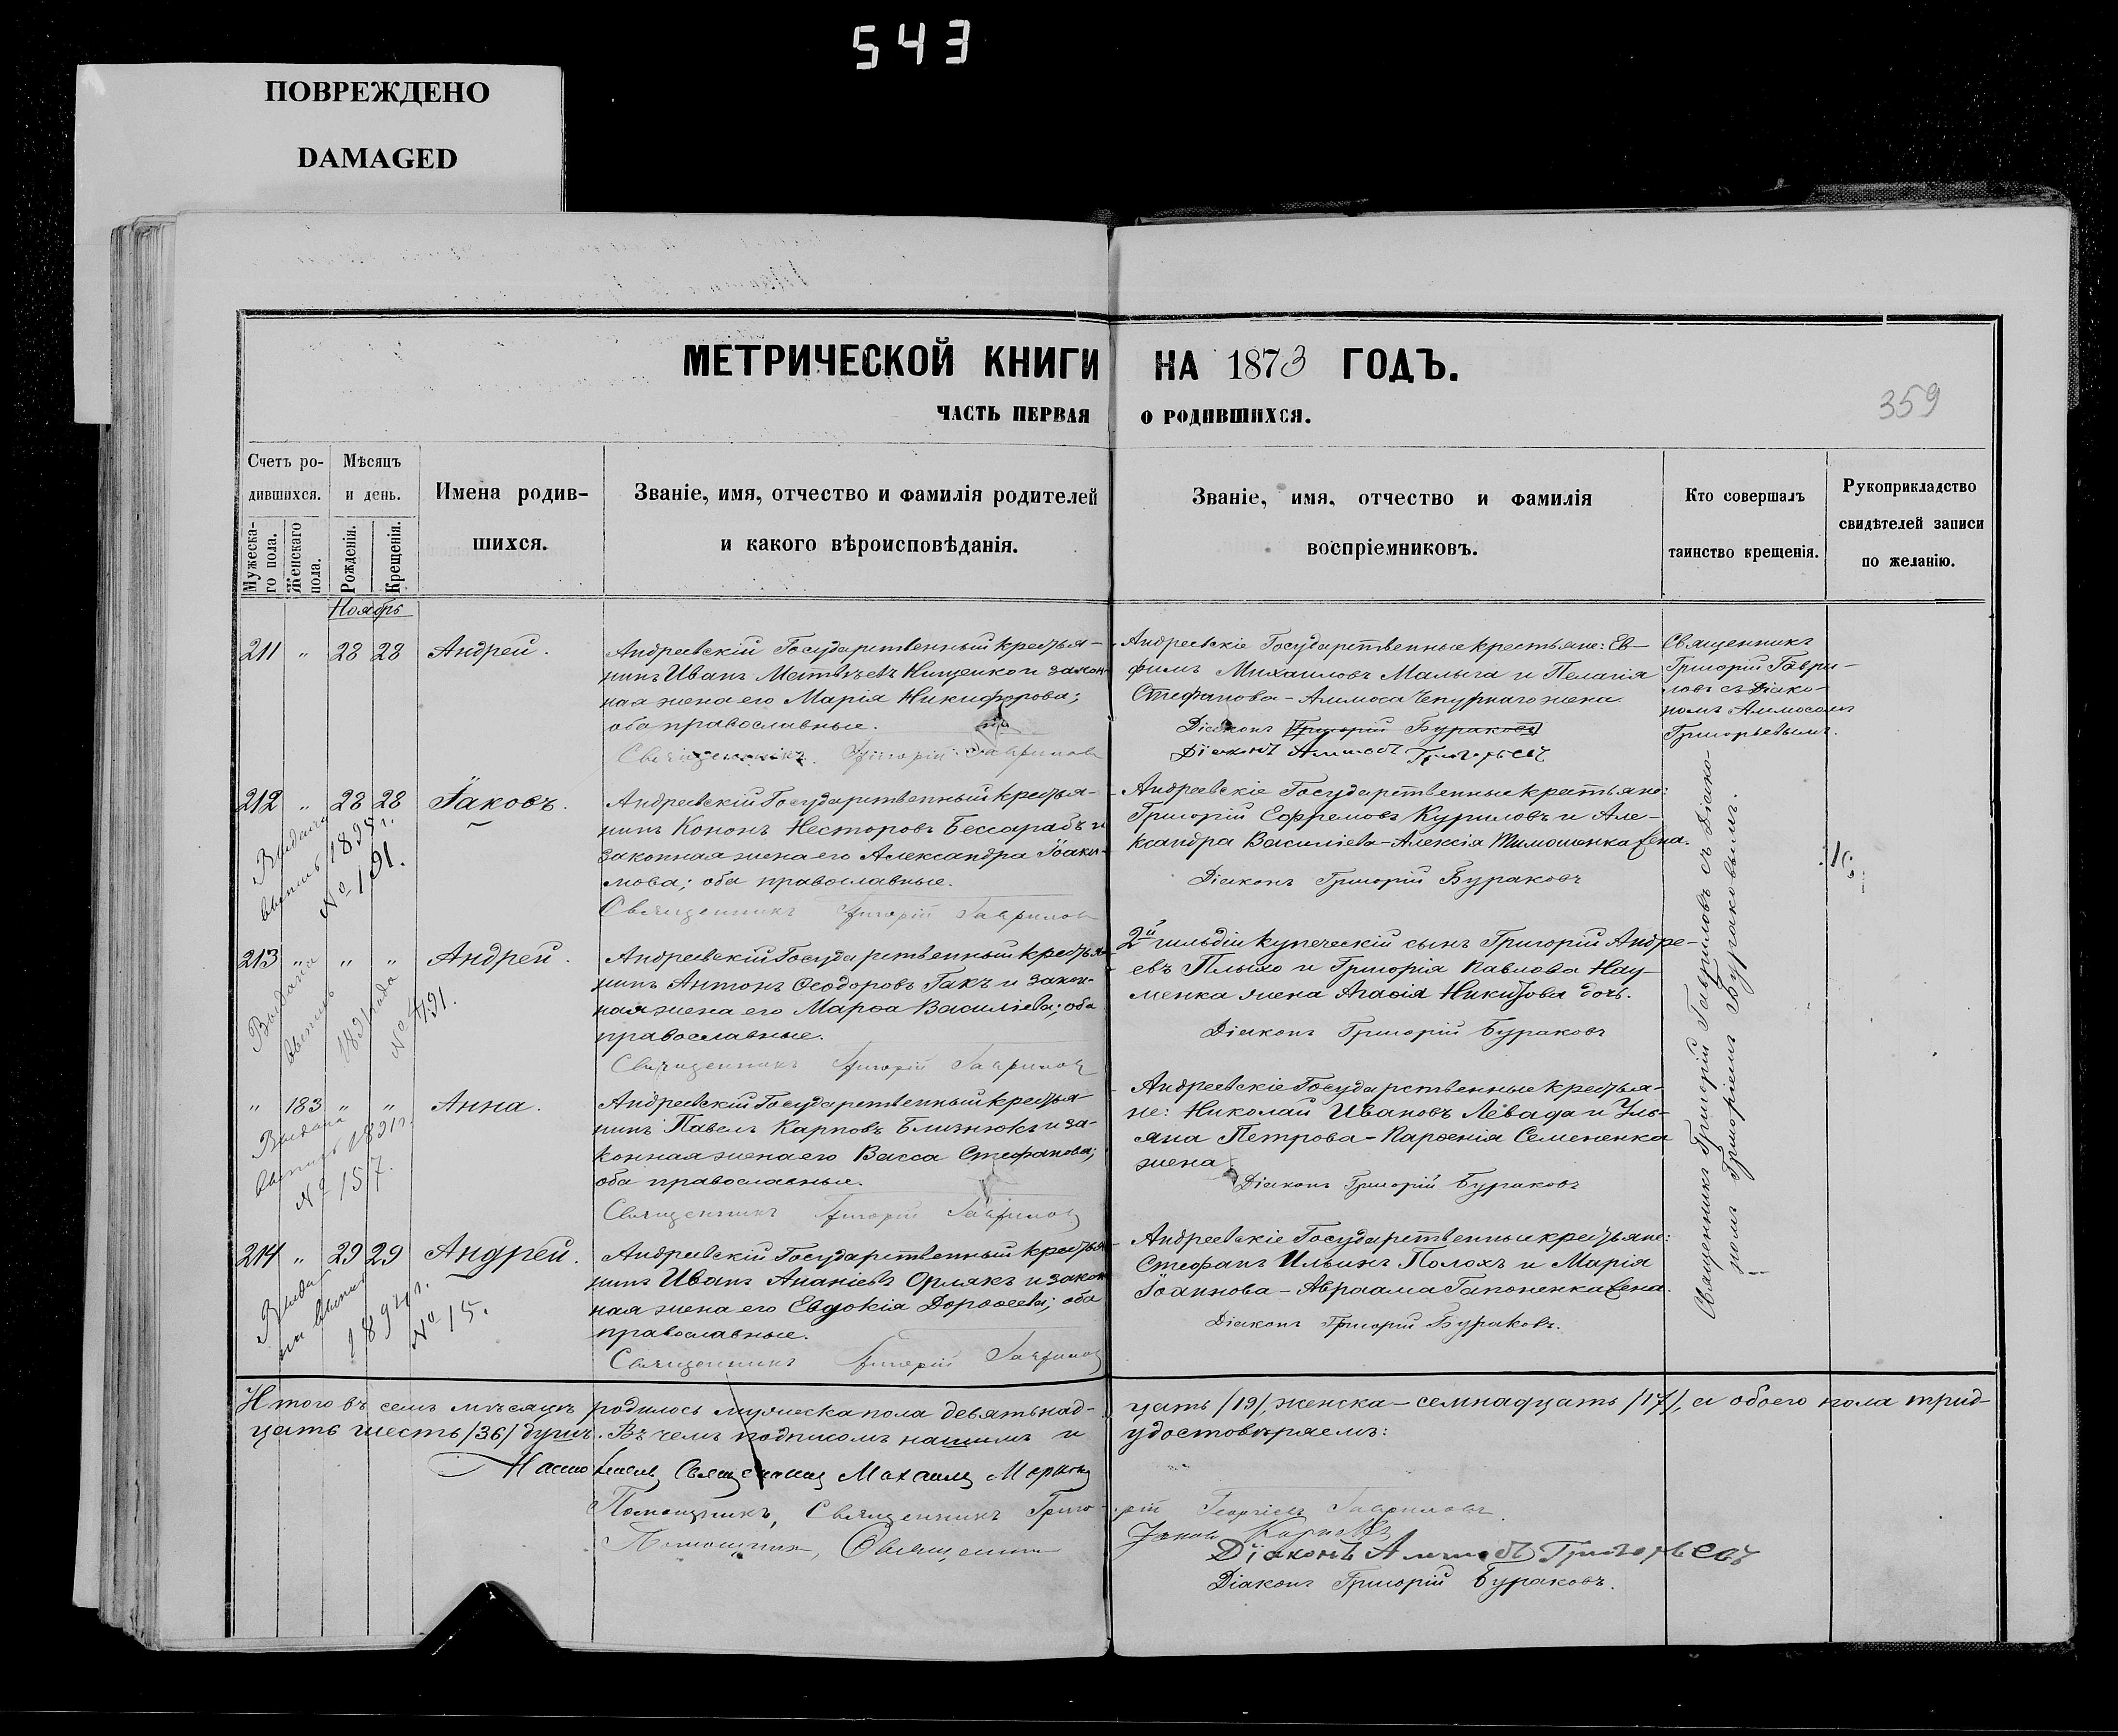 543
ПОВРЕЖДЕНО
DAMAGED
МЕТРИЧЕСКОЙ КНИГИ НА 1873 ГОДЪ.
ЧАСТЬ ПЕРВАЯ О РОДИВШИХСЯ.
359
Счетъ ро-
дившихся.
Мѣсяцъ
и день.
Мужеска-
го пола.
Женскаго
пола.
Рожденія.
Крещенія.
Имена родив-
шихся.
Званіе, имя, отчество и фамилія родителей
и какого вѣроисповѣданія.
Званіе, имя, отчество и фамилія
воспріемниковъ.
Кто совершалъ
таинство крещенія.
Рукоприкладство
свидѣтелей записи
по желанію.
Ноябрь
211 " 28 28 Андрей.
Андреевскій Государственный крестья-
нинъ Иванъ Матвѣевъ Нищенко и закон-
ная жена его Марія Никифорова;
оба православные.
Священникъ Григорій Гавриловъ
Андреевскіе Государственные крестьяне: Ев-
фимъ Михаиловъ Малыга и Пелагія
Стефанова - Аммоса Чепурнаго жена.
Діаконъ Григорій Бураковъ
Діаконъ Аммосъ Григорьевъ
Священникъ
Григорій Гаври-
ловъ съ Діако-
номъ Аммосомъ
Григорьевымъ.
212 " 28 28 Іаковъ.
Выдана
выпись 1895 г.
№ 191.
Андреевскій Государственный крестья-
нинъ Кононъ Несторовъ Бессарабъ и
законная жена его Александра Іоаки-
мова; оба православные.
Священникъ Григорій Гавриловъ
Андреевскіе Государственные крестьяне:
Григорій Ефремовъ Куриловъ и Але-
ксандра Василіева - Алексія Тимошенка жена.
Діаконъ Григорій Бураковъ
213 " " " Андрей.
Выдана
выпись
Андреевскій Государственный крестья-
нинъ Антонъ Ѳеодоровъ Гакъ и закон-
ная жена его Марѳа Василіева; оба
православные.
Священникъ Григорій Гавриловъ
2й гильдіи купеческій сынъ Григорій Андре-
евъ Плыхо и Григорія Павлова Нау-
менка жена Агафія Никитова дочь.
Діаконъ Григорій Бураковъ
" 183 " " Анна.
Выдана
выпись 1891 г.
№ 157.
Андреевскій Государственный крестья-
нинъ Павелъ Карповъ Близнюкъ и за-
конная жена его Васса Стефанова;
оба православные.
Священникъ Григорій Гавриловъ
Андреевскіе Государственные крестья-
не: Николай Ивановъ Левада и Уль-
яна Петрова - Парѳенія Семененка
жена
Діаконъ Григорій Бураковъ
214 " 29 29 Андрей.
№ 15.
Андреевскій Государственный крестья-
нинъ Иванъ Ананіевъ Орлякъ и закон-
ная жена его Евдокія Дороѳеева; оба
православные.
Священникъ Григорій Гавриловъ
Андреевскіе Государственные крестьяне:
Стефанъ Ильинъ Полохъ и Марія
Іоаннова - Авраама Гапоненка жена.
Діаконъ Григорій Бураковъ.
Священникъ Григорій Гавриловъ съ Діако-
номъ Григоріемъ Бураковымъ.
Итого въ семъ мѣсяцѣ родилось мужеска пола девятьнад-
цать /19/, женска - семнадцать /17/, а обоего пола трид-
цать шесть /36/ душъ. Въ чемъ подписомъ нашимъ и
удостовѣряемъ:
Настоятель Священникъ Михаилъ
Помощникъ, Священникъ Григорій Георгіевъ Гавриловъ.
Помощникъ, Священникъ
Діаконъ Аммосъ Григорьевъ
Діаконъ Григорій Бураковъ.